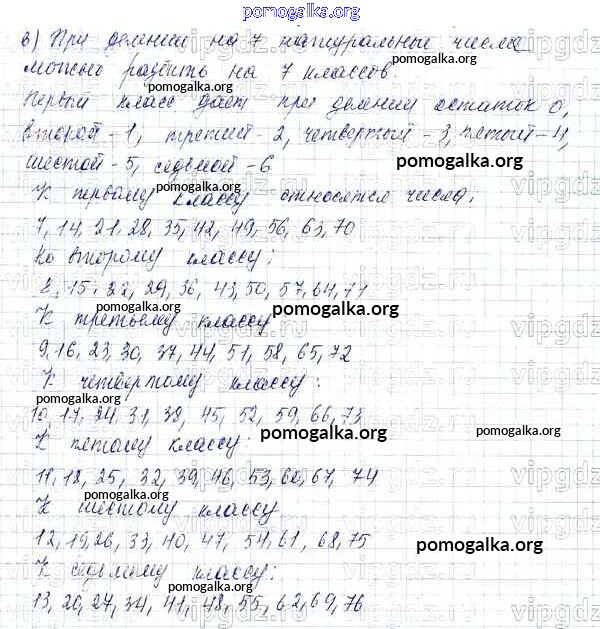 pomogalka.org
в) При делении на 7 натуральные числа
можно разбить на 7 классов.
pomogalka.org
Первый класс даёт при делении остаток 0,
второй - 1, третий - 2, четвертый - 3, пятый - 4,
шестой - 5, седьмой - 6
pomogalka.org
К первому классу относятся числа:
pomogalka.org
7, 14, 21, 28, 35, 42, 49, 56, 63, 70
Ко второму классу:
8, 15, 22, 29, 36, 43, 50, 57, 64, 71
pomogalka.org
pomogalka.org
К третьему классу
9, 16, 23, 30, 37, 44, 51, 58, 65, 72
К четвертому классу:
pomogalka.org
10, 17, 24, 31, 38, 45, 52, 59, 66, 73
К пятому классу:
pomogalka.org
11, 18, 25, 32, 39, 46, 53, 60, 67, 74
pomogalka.org
К шестому классу
12, 19, 26, 33, 40, 47, 54, 61, 68, 75
pomogalka.org
К седьмому классу:
pomogalka.org
13, 20, 27, 34, 41, 48, 55, 62, 69, 76
vipgdz.ru